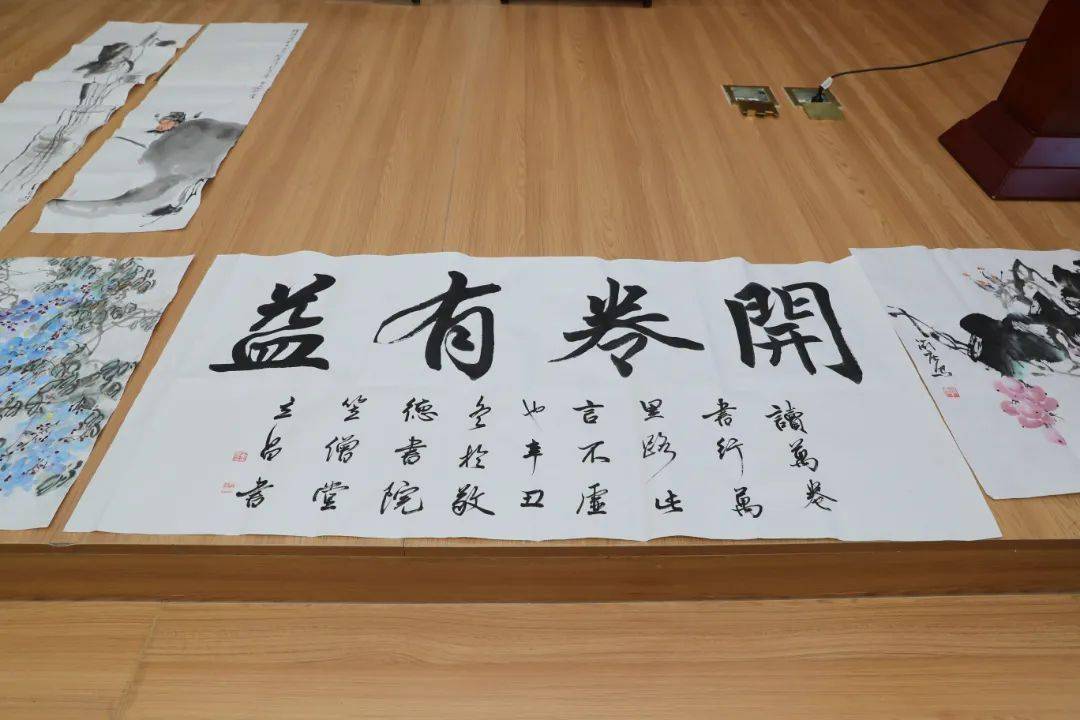 開卷有益
讀萬卷
書行萬
里路此
言不虛
也辛丑
冬於敬
德書院
竺僧堂
立昌書